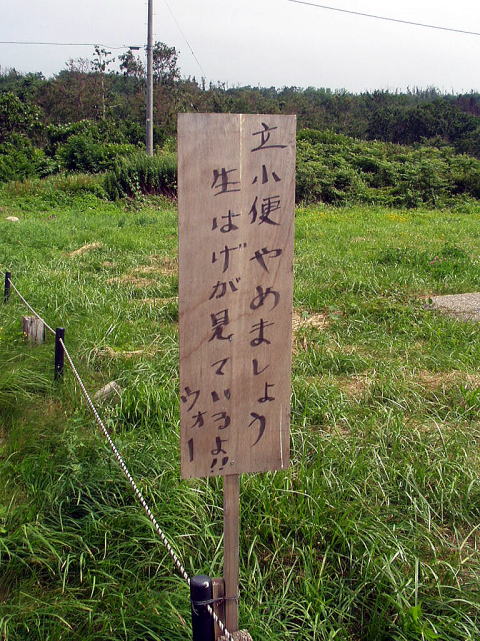 立小便やめましょう
生はげが見ているよ!!
ウォー